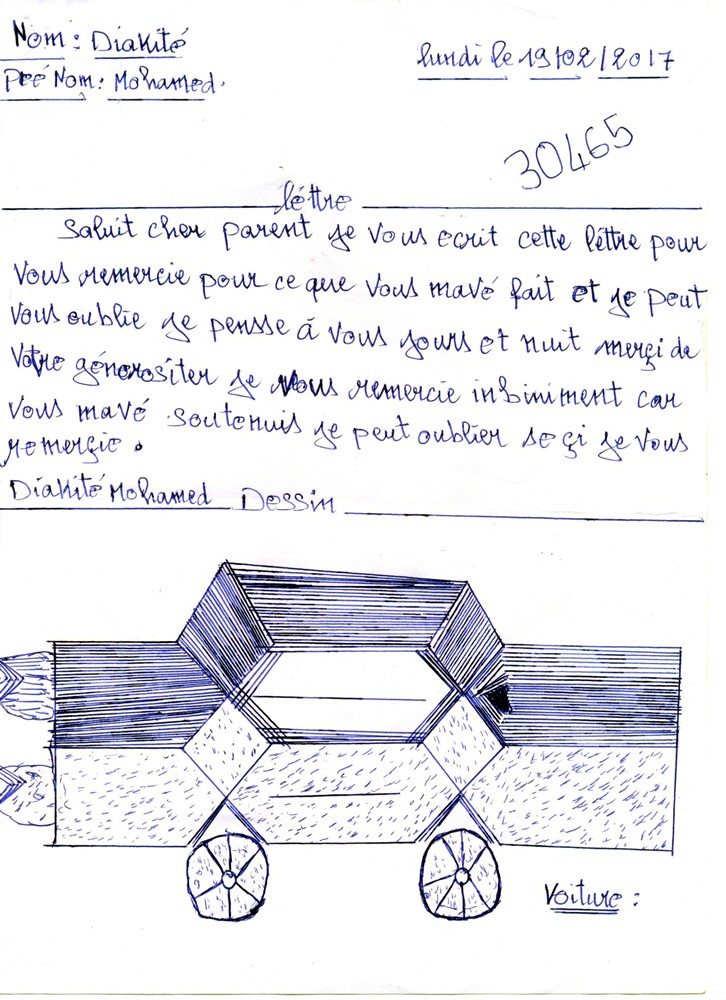 Nom : Diakité
lundi le 19/02/2017
Préé Nom: Mohamed.
30465
léttre
Saluit cher parent je vous ecrit cette léttre pour
vous remercie pour ce que vous mavé fait et je peut
vous oublie je pensse à vous jours et nuit merçi de
votre générositer je vous remercie infiniment car
vous mavé soutenuis je peut oublier se çi je vous
remerçie.
Diakité Mohamed Dessin
Voiture :